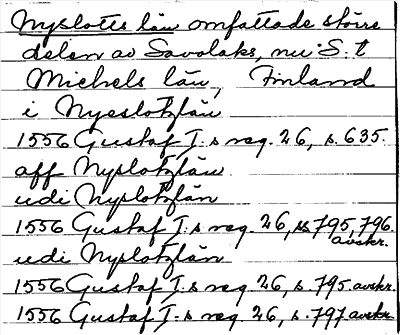 Nyslotts län omfattade större
delen av Savolaks, nu: S:t
Michels län, Finland
i Nyeslotzlän
1556 Gustaf I:s reg. 26, s. 635.
aff Nyslotzlän
udi Nyslotzlän
1556 Gustaf I:s reg. 26, ss 795, 796.
avskr.
udi Nyslotzlän
1556 Gustaf I:s reg. 26, s. 795 avskr.
1556 Gustaf I:s reg. 26, s. 797 avskr.